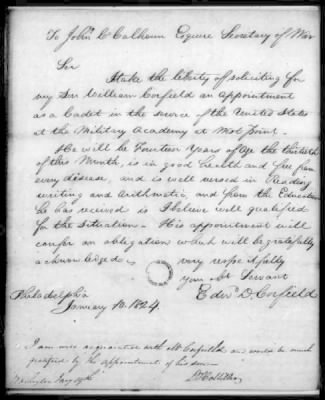 To John C Calhoun Esquire Secretary of War
Sir
I take the liberty of soliciting for
my Son William Corfield an appointment
as a Cadet in the service of the United States
at the Military Academy at West point.
He will be Fourteen Years of Age the thirtieth
of this Month, is in good health and free from
every disease, and is well versed in Reading
writing and Arithmetic, and from the Education
he has received is I believe well qualified
for the situation — His appointment will
confer an obligation which will be gratefully
acknowledged
very respectfully
your Servant
Edwd D. Corfield
Philadelphia
January 10. 1824.
I am well acquainted with Mr Corfield and would be much
gratified by the appointment of his son
Washington Jany